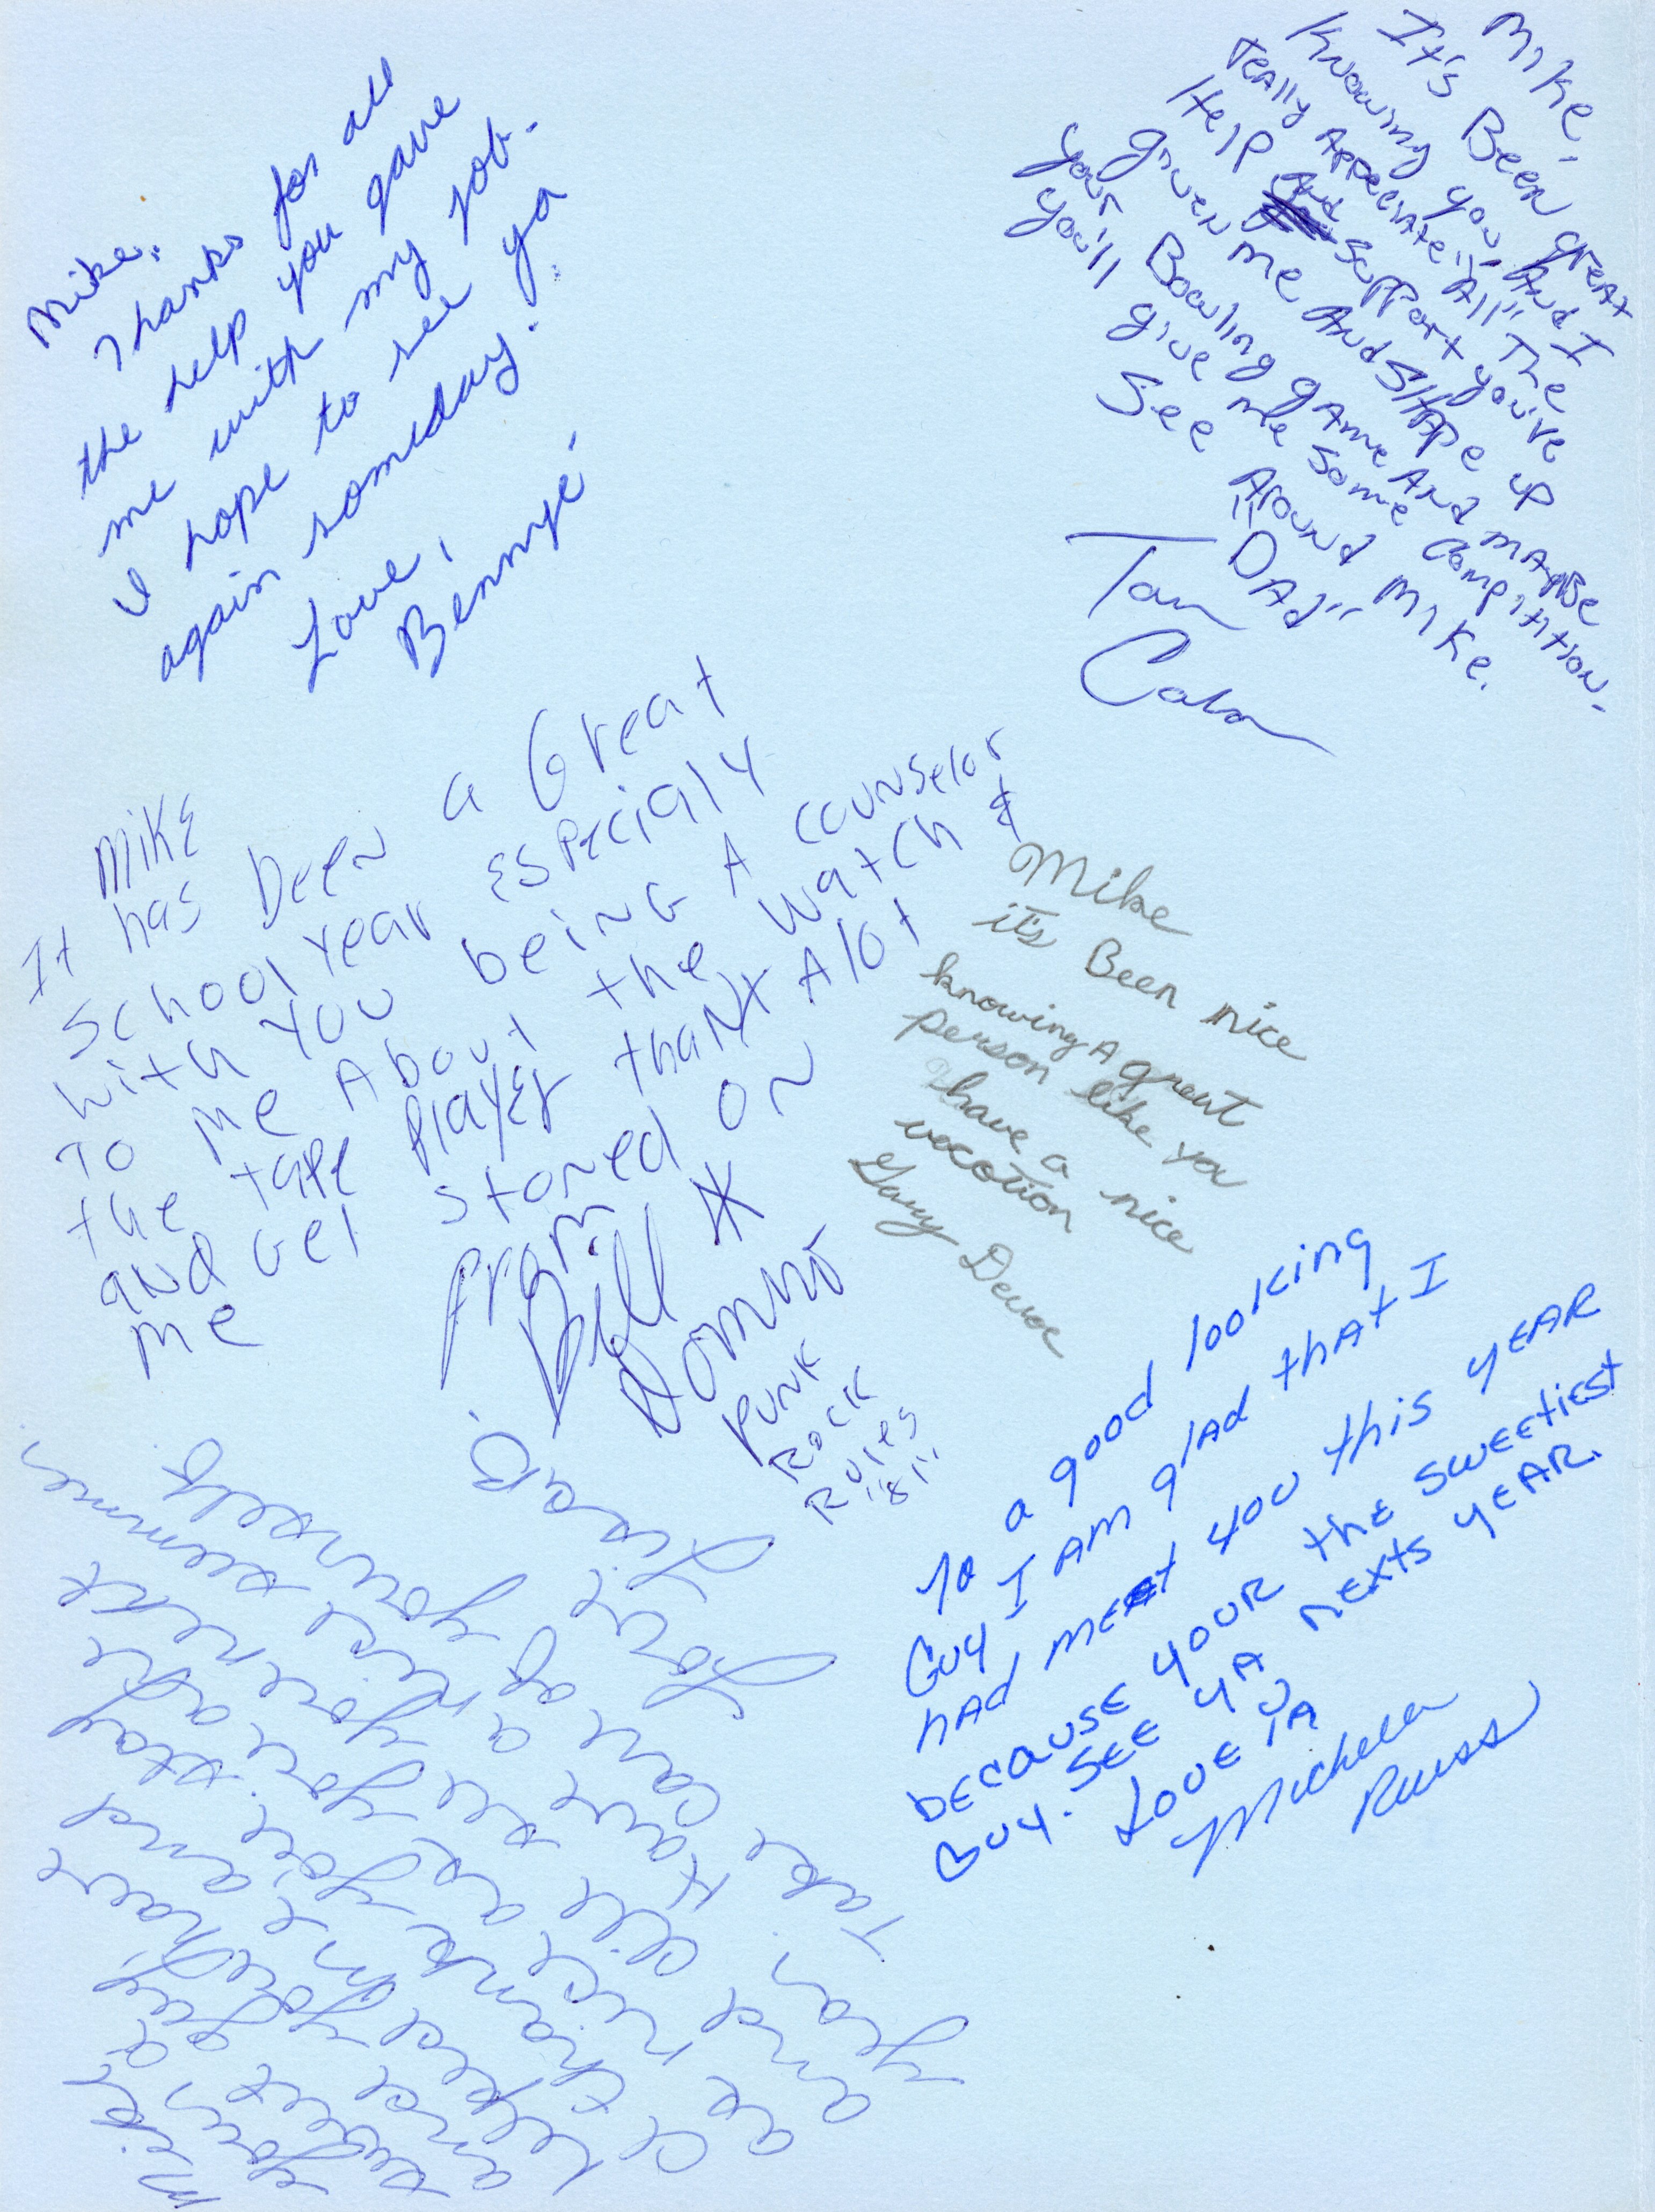 Mike,
Thanks for all
the help you gave
me with my job.
I hope to see ya
again someday!
Love,
Bennye
Mike,
It's Been great
knowing you, And I
really Appeciate "All" The
Help and support you've
given me And SHApe up
your Bowling game And maybe
you'll give me some Compitition.
See Around Mike.
"DAd"
Tom
MikE
It has been a Great
School year Especialy
with you being A counselor
To me About the watch &
the tape Player thanx Alot
and Get stoned on
me
from
Bill
PUNK
ROCK
Rules
'81'
Mike
it's Been nice
knowing A great
person like you
have a nice
vacation
Gary
To a good looking
Guy I Am glad that I
had meet you this yEAR
bEcausE yOUR thE swEEtiest
Guy. SEE yA nExts yEAR.
LovE yA
Michelle
Russ
Mike
your a
sweet guy
and
keep
think your
nice and
all stay
and as
as you are
you
Have a nice
Take care of yourself.
Love